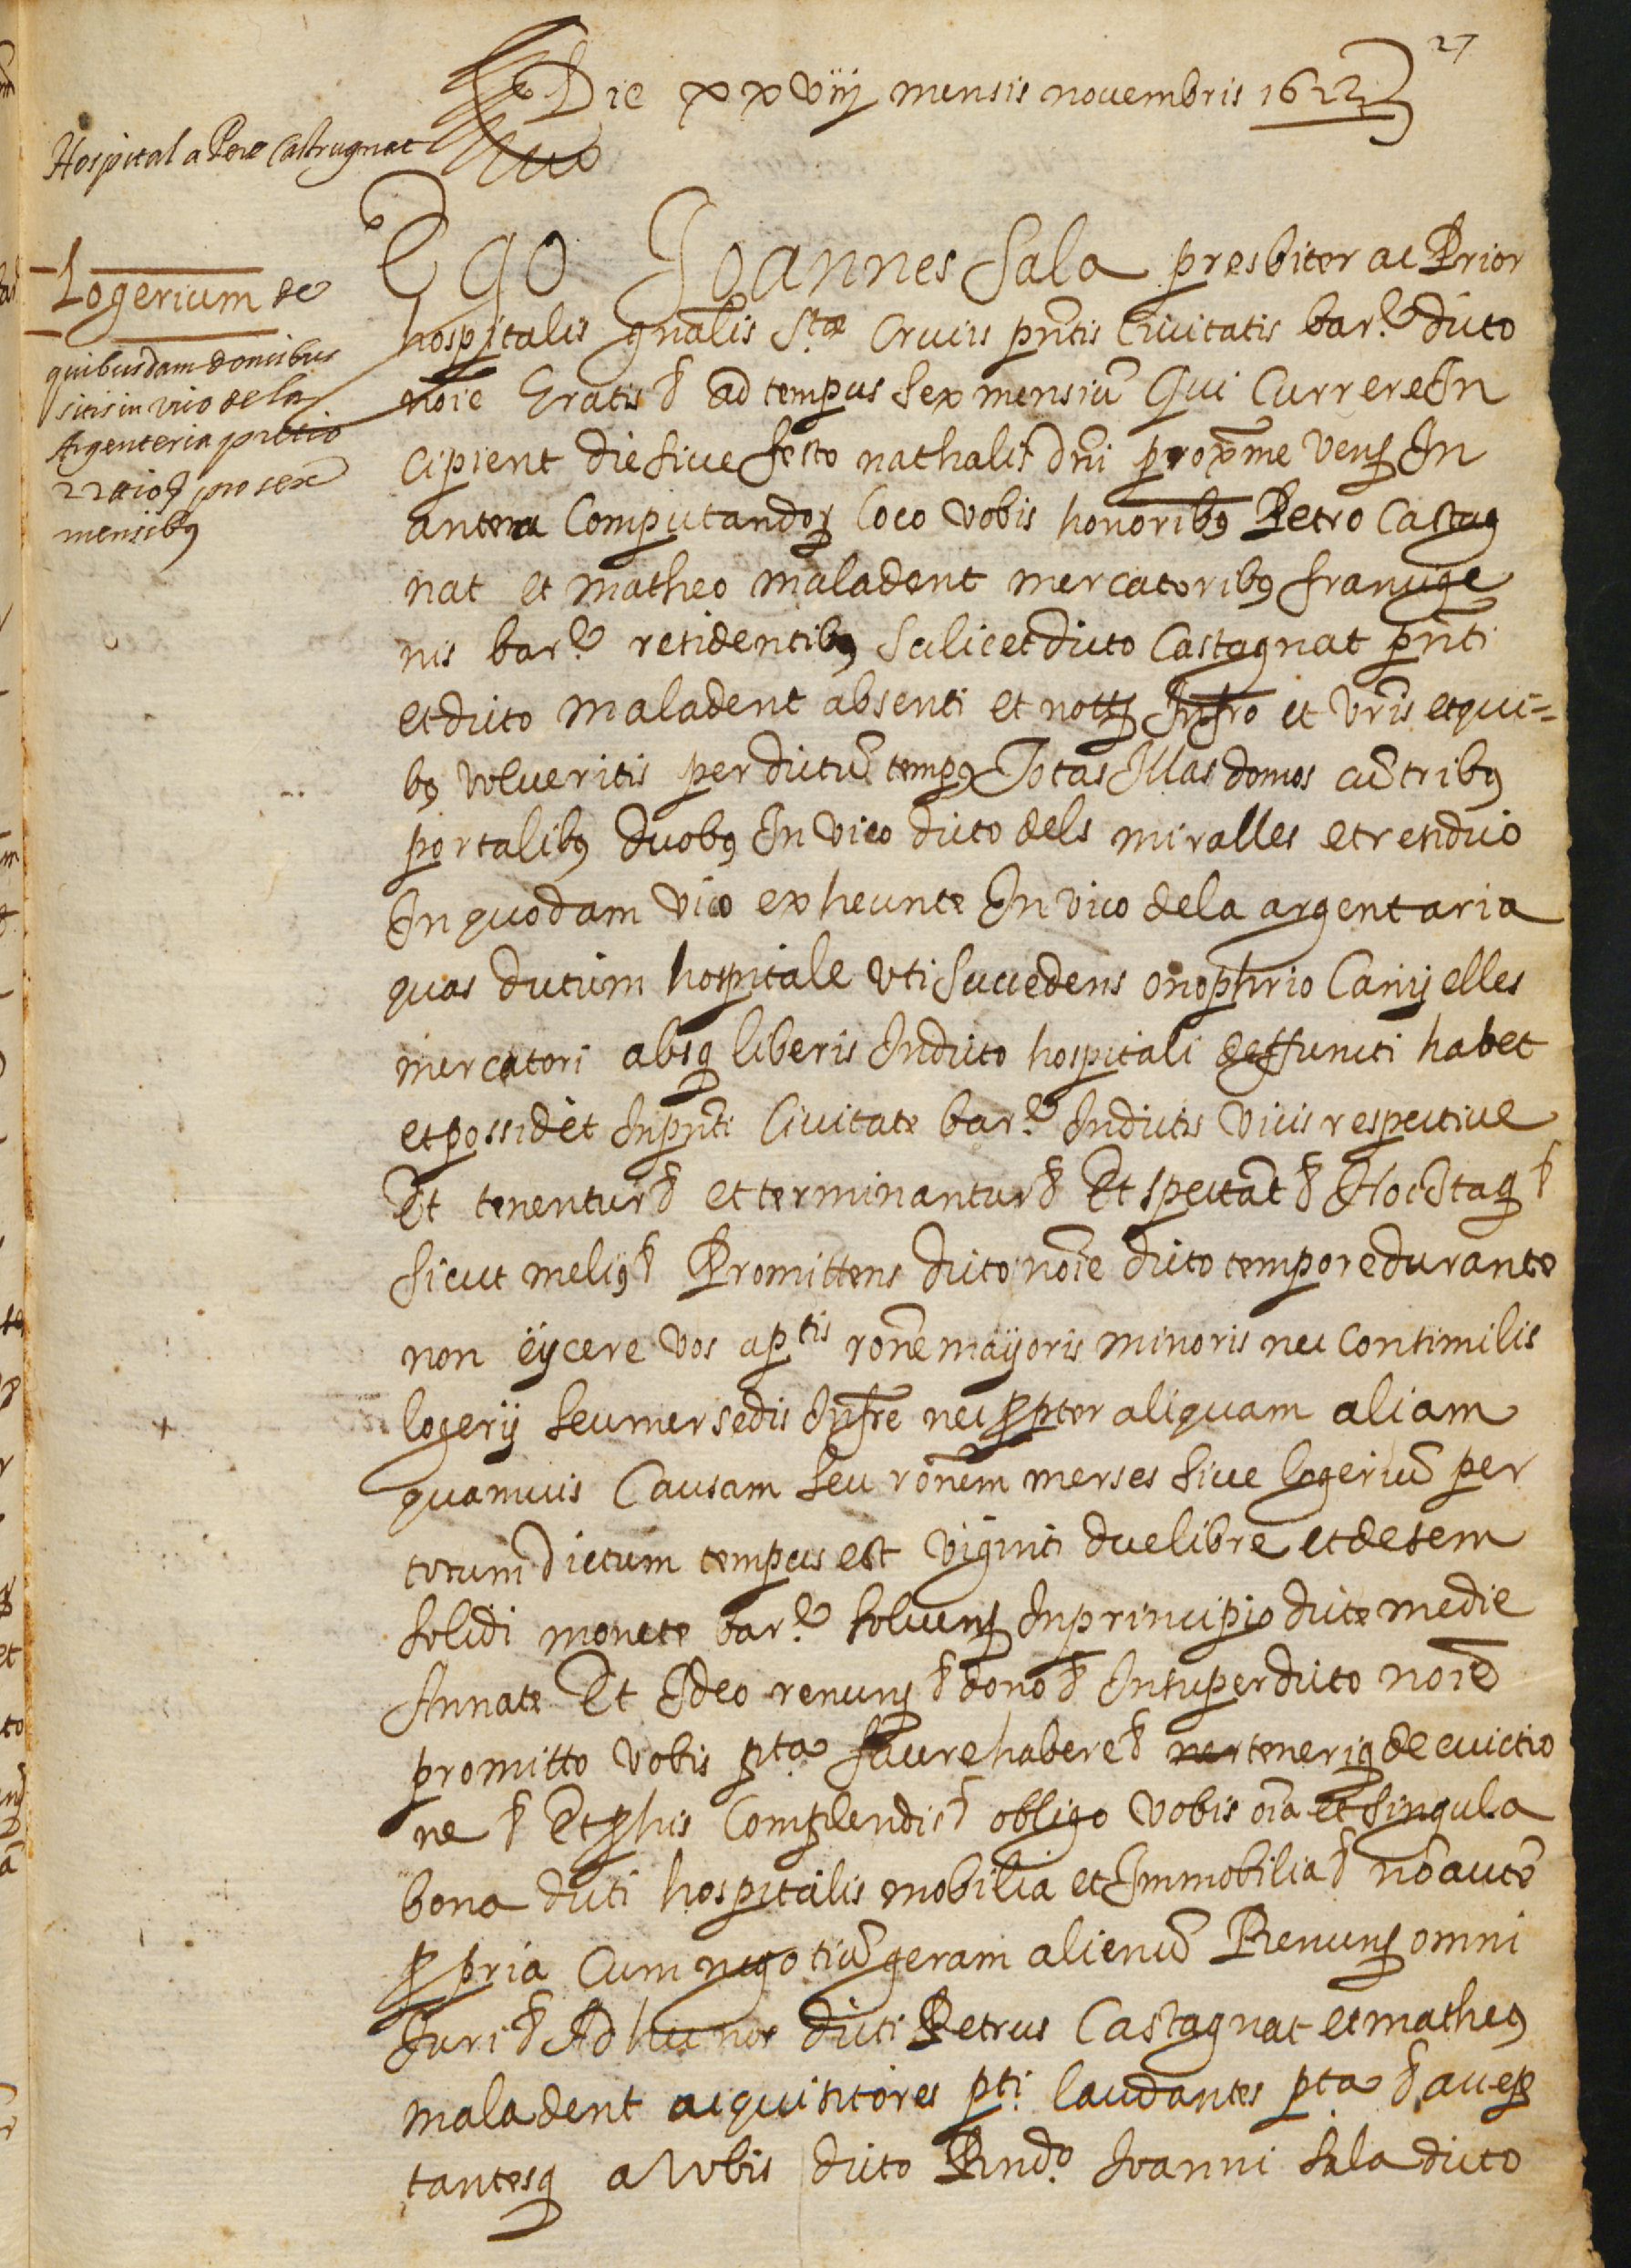 27
Die xxviij mensis nouembris 1622
Hospital a Pere Castrugnat
Logerium de
quibusdam domibus
sitis in vico de la
Argenteria pretio
22 ₶ 10 ß pro sex
mensibꝰ
Ego Joannes Sala presbiter ac Prior
hospitalis gnãlis Stæ Crucis pñtis Ciuitatis barᵉ dicto
noĩe Gratis & ad tempus sex mensiũ Qui Currere In
cipient die siue festo nathalis dñi proxᵐe venꝭ In
antea Computandoꝝ loco vobis honoribꝰ Petro Castag
nat et matheo maladent mercatoribꝰ francige
nis barᵉ residentibꝰ scilicet dicto Castagnat pñti
et dicto maladent absenti et notꝭ Infrõ et vrĩs et qui=
bꝰ volueritis per dictũ tempꝰ Totas Illas domos cũ tribꝰ
portalibꝰ duobꝰ In vico dicto dels miralles et residuo
In quodam vico exheunte In vico de la argentaria
quas dictum hospitale vti succedens onophrio Canyelles
mercatori absqꝫ liberis In dicto hospitali deffuncti habet
et possidet In pñti Ciuitate barᵉ In dictis vicis respectiue
Et tenentur & et terminantur & Et spectãt & Hoc Itaqꝫ &
Sicut meliꝰ & Promittens dicto noĩe dicto tempore durante
non eÿcere vos a pᵗⁱˢ rõne maÿoris minoris nec consimilis
logerij seu mersedis Infrẽ nec ꝓpter aliquam aliam
quamuis Causam seu rõnem merses siue logeriũ per
totum dictum tempus est viginti due libre et desem
solidi monete barᵉ soluenꝭ In principio dicte medie
Annate Et Ideo renunꝭ & dono & Insuper dicto noĩe
promitto vobis pᵗᵃ facere habere & teneriqꝫ de euictio
ne & Et ꝓ his Complendis & obligo vobis oĩa et singula
bona dicti hospitalis mobilia et Immobilia & nõ autẽ
ꝓpria Cum negotiũ geram alienũ Renunꝭ omni
Juri & Ad hec nos dicti Petrus Castagnat et matheꝰ
maladent acquisitores pᵗⁱ laudantes pᵗᵃ & accep
tantesqꝫ a vobis dicto Rndo Joanni Sala dicto